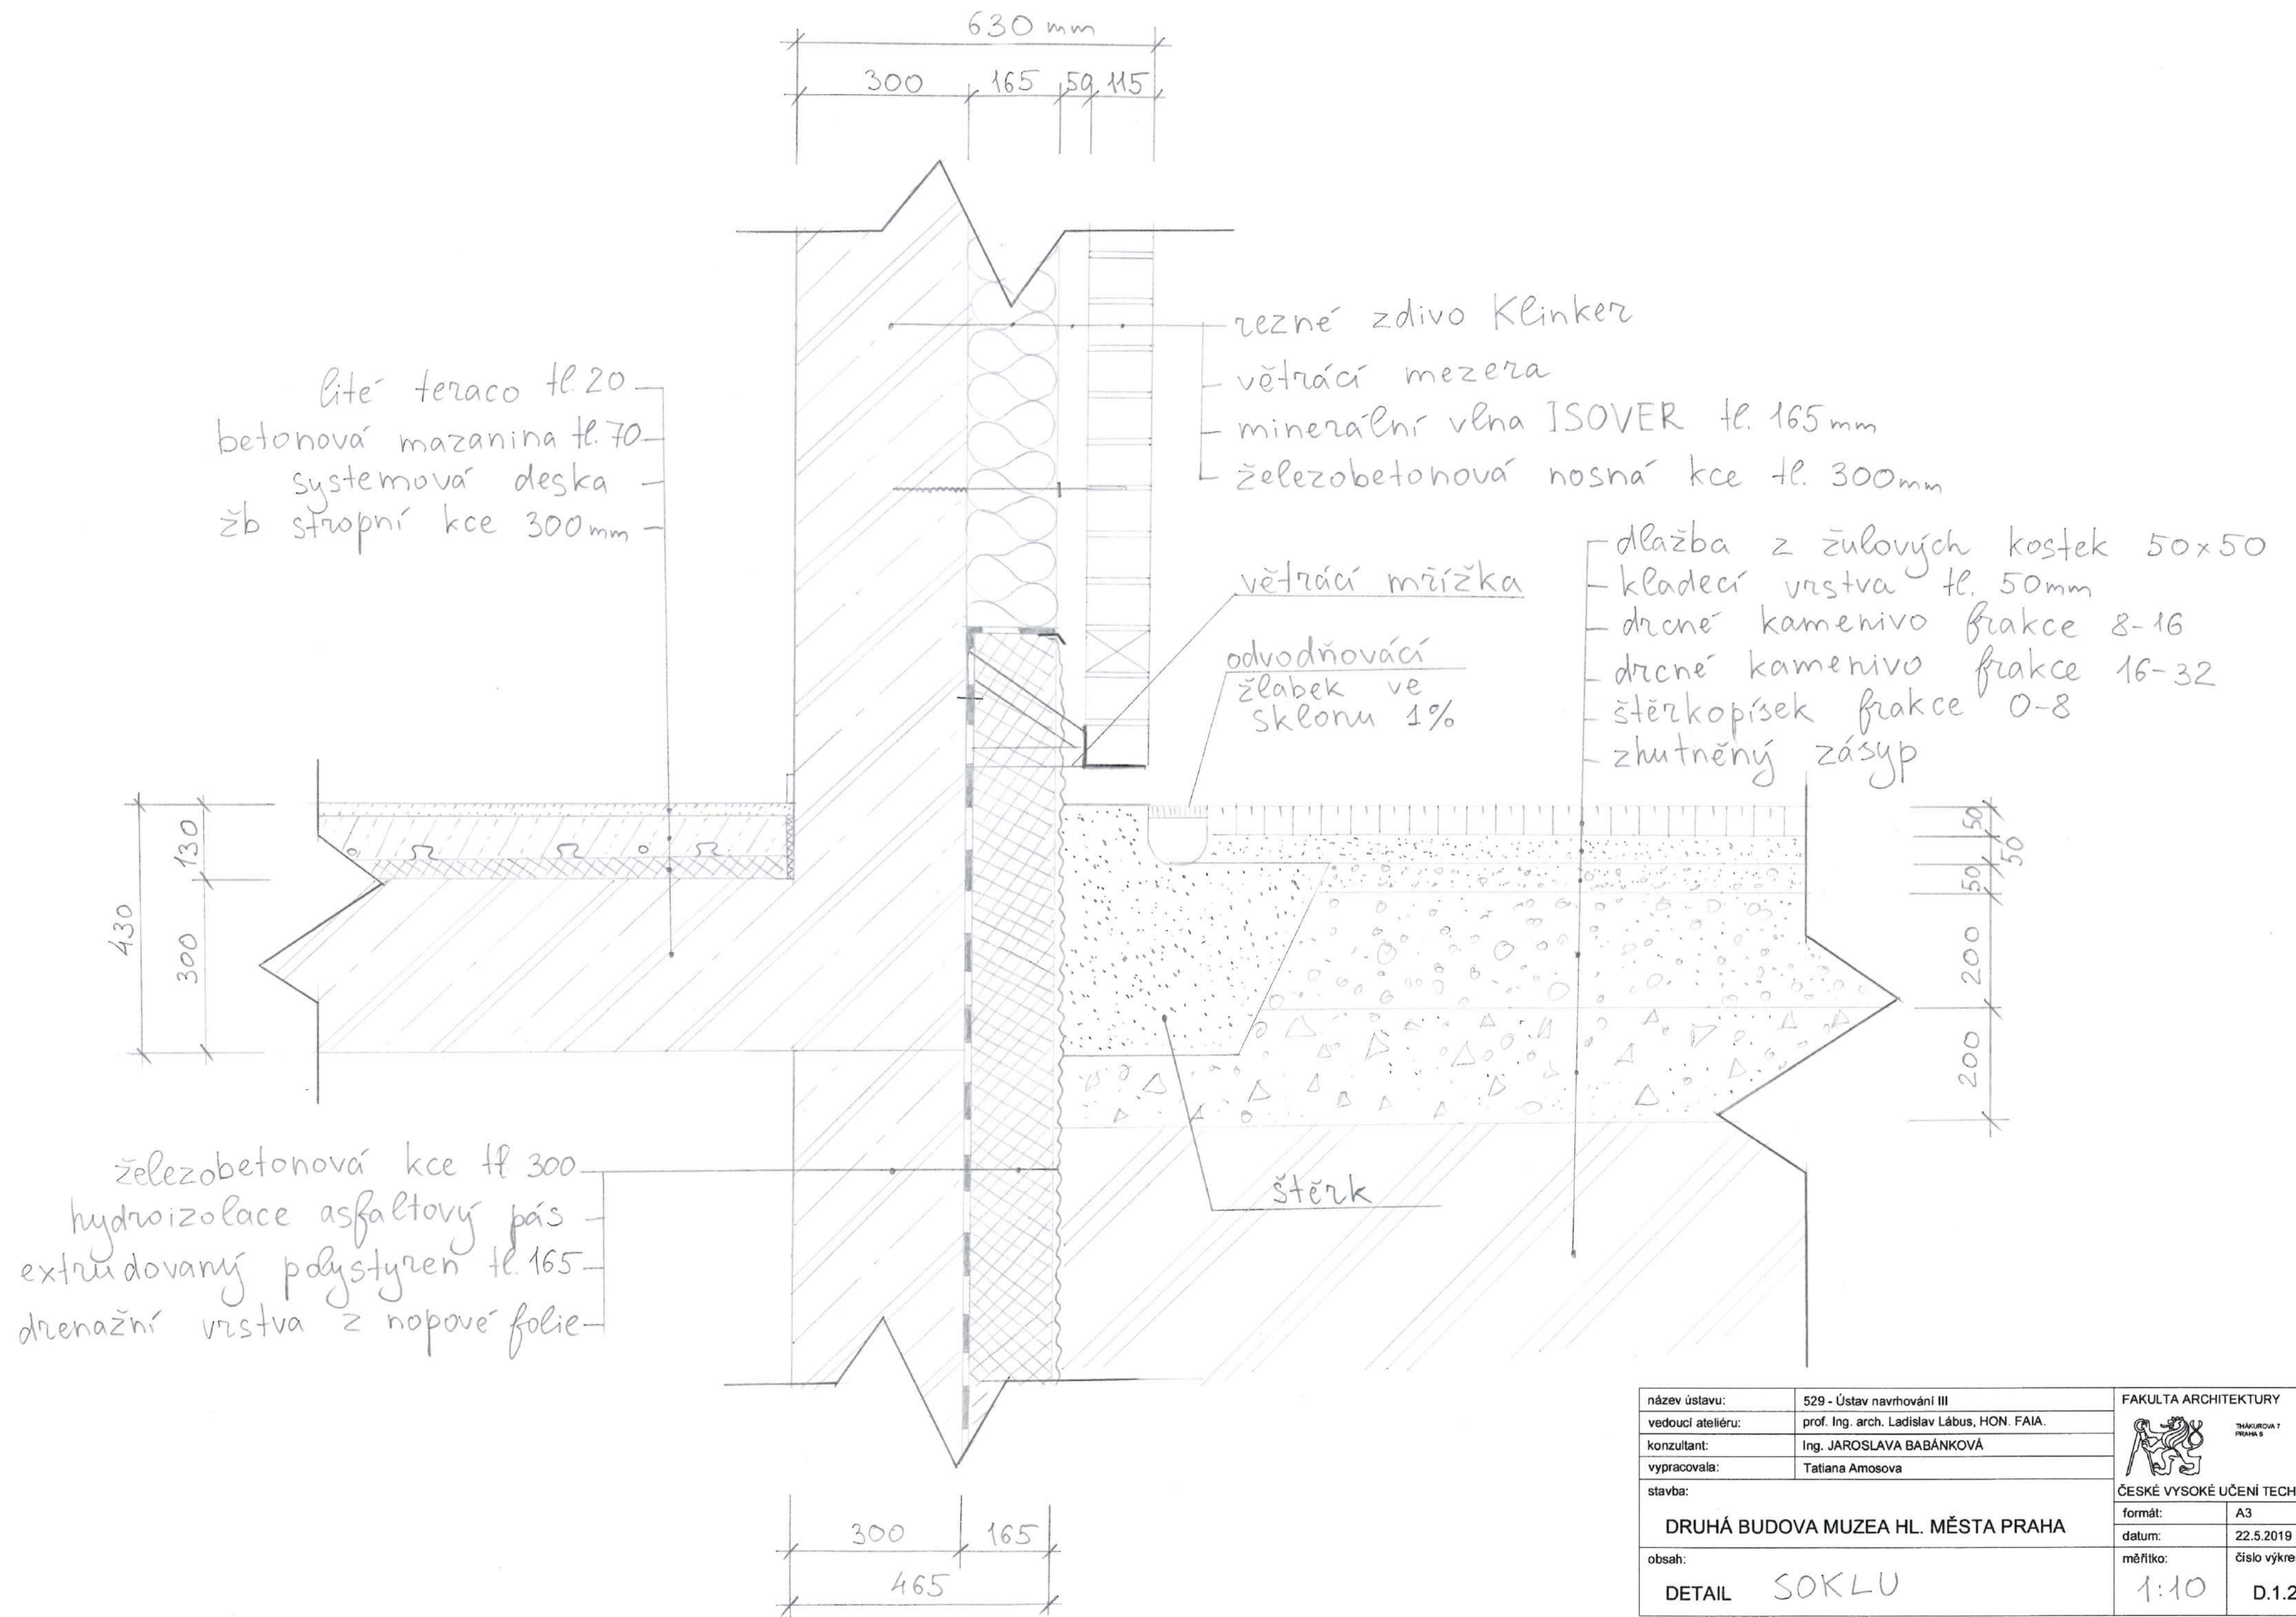 630 mm
300 165 50 115
rezné zdivo Klinker
větrácí mezera
minerální vlna ISOVER tl. 165 mm
železobetonová nosná kce tl. 300mm
lité teraco tl. 20
betonová mazanina tl. 70
systemová deska
žb stropní kce 300 mm
dlažba z žulových kostek 50x50
kladecí vrstva tl. 50mm
drcné kamenivo frakce 8-16
drcné kamenivo frakce 16-32
štěrkopísek frakce 0-8
zhutněný zásyp
větrácí mřížka
odvodňovácí
žlabek ve
sklonu 1%
430
130
300
50
50
50
200
200
železobetonová kce tl 300
hydroizolace asfaltový pás
extrudovaný polystyren tl. 165
drenažní vrstva z nopové folie
štěrk
300 165
465
název ústavu: 529 - Ústav navrhování III
vedoucí ateliéru: prof. Ing. arch. Ladislav Lábus, HON. FAIA.
konzultant: Ing. JAROSLAVA BABÁNKOVÁ
vypracovala: Tatiana Amosova
stavba:
DRUHÁ BUDOVA MUZEA HL. MĚSTA PRAHA
obsah:
DETAIL SOKLU
FAKULTA ARCHITEKTURY
THÁKUROVA 7
PRAHA 6
ČESKÉ VYSOKÉ UČENÍ TECH
formát: A3
datum: 22.5.2019
měřítko: číslo výkre
1:10 D.1.2